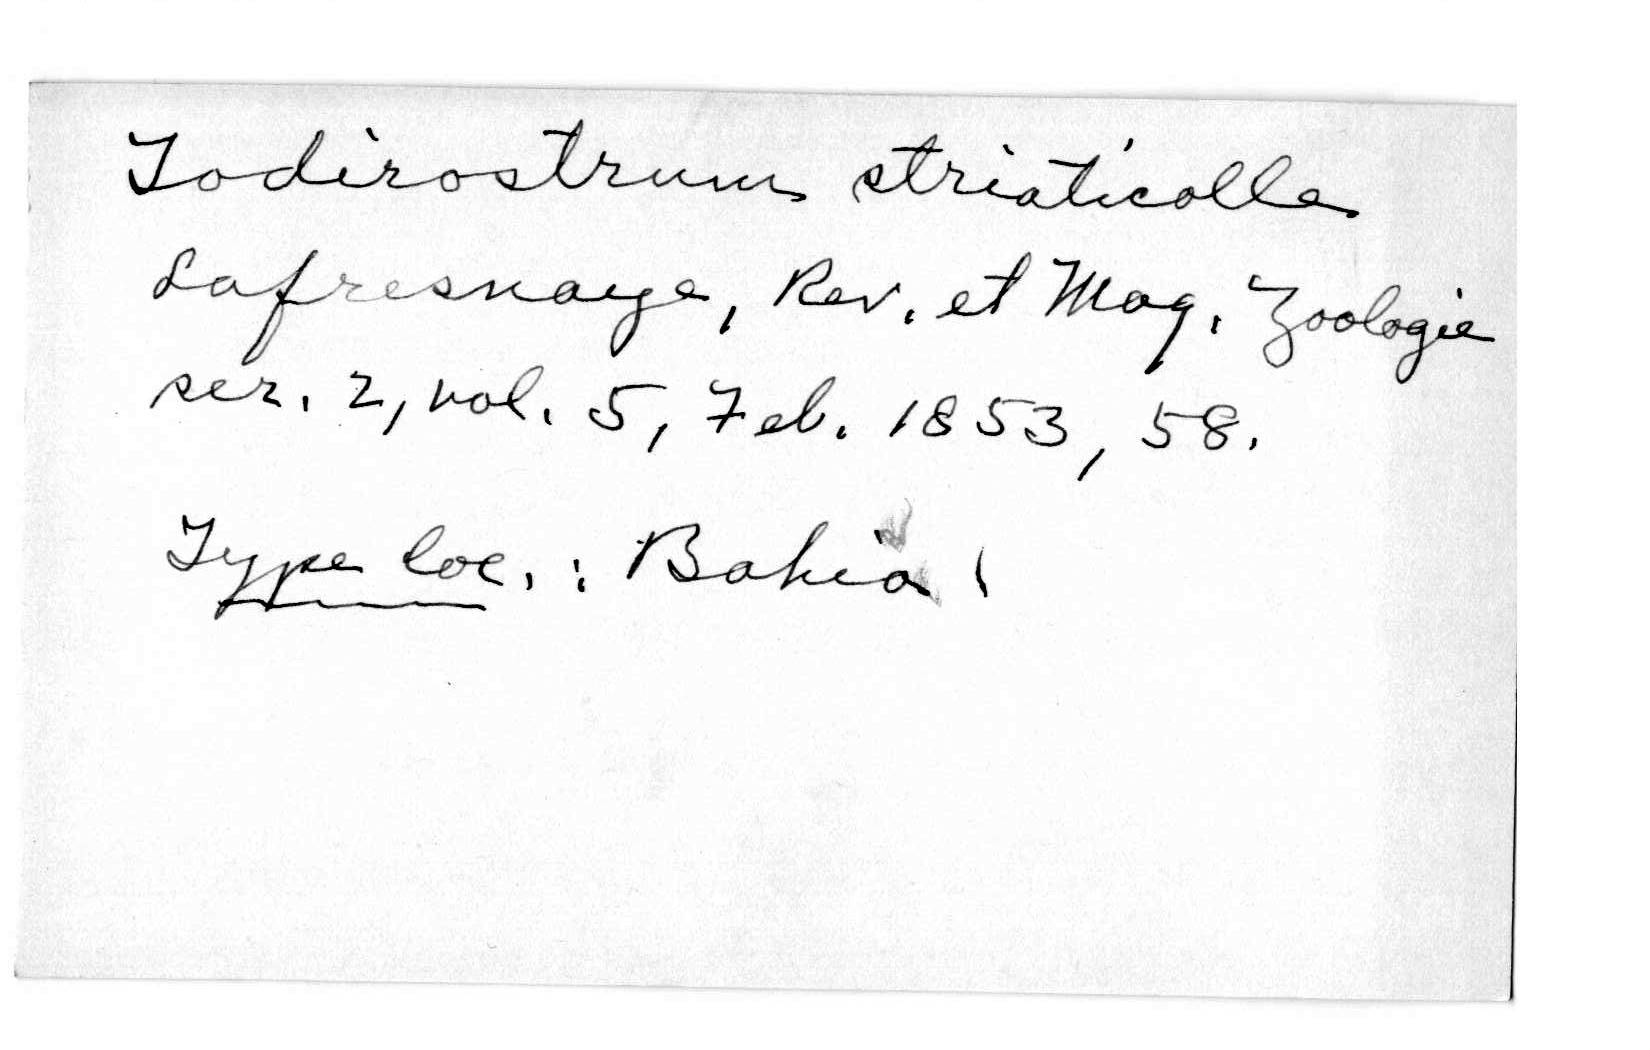 Todirostrum striaticolle
Lafresnaye, Rev. et Mag. Zoologie
ser. 2, vol. 5, Feb. 1853, 58.
Type loc. : Bahia